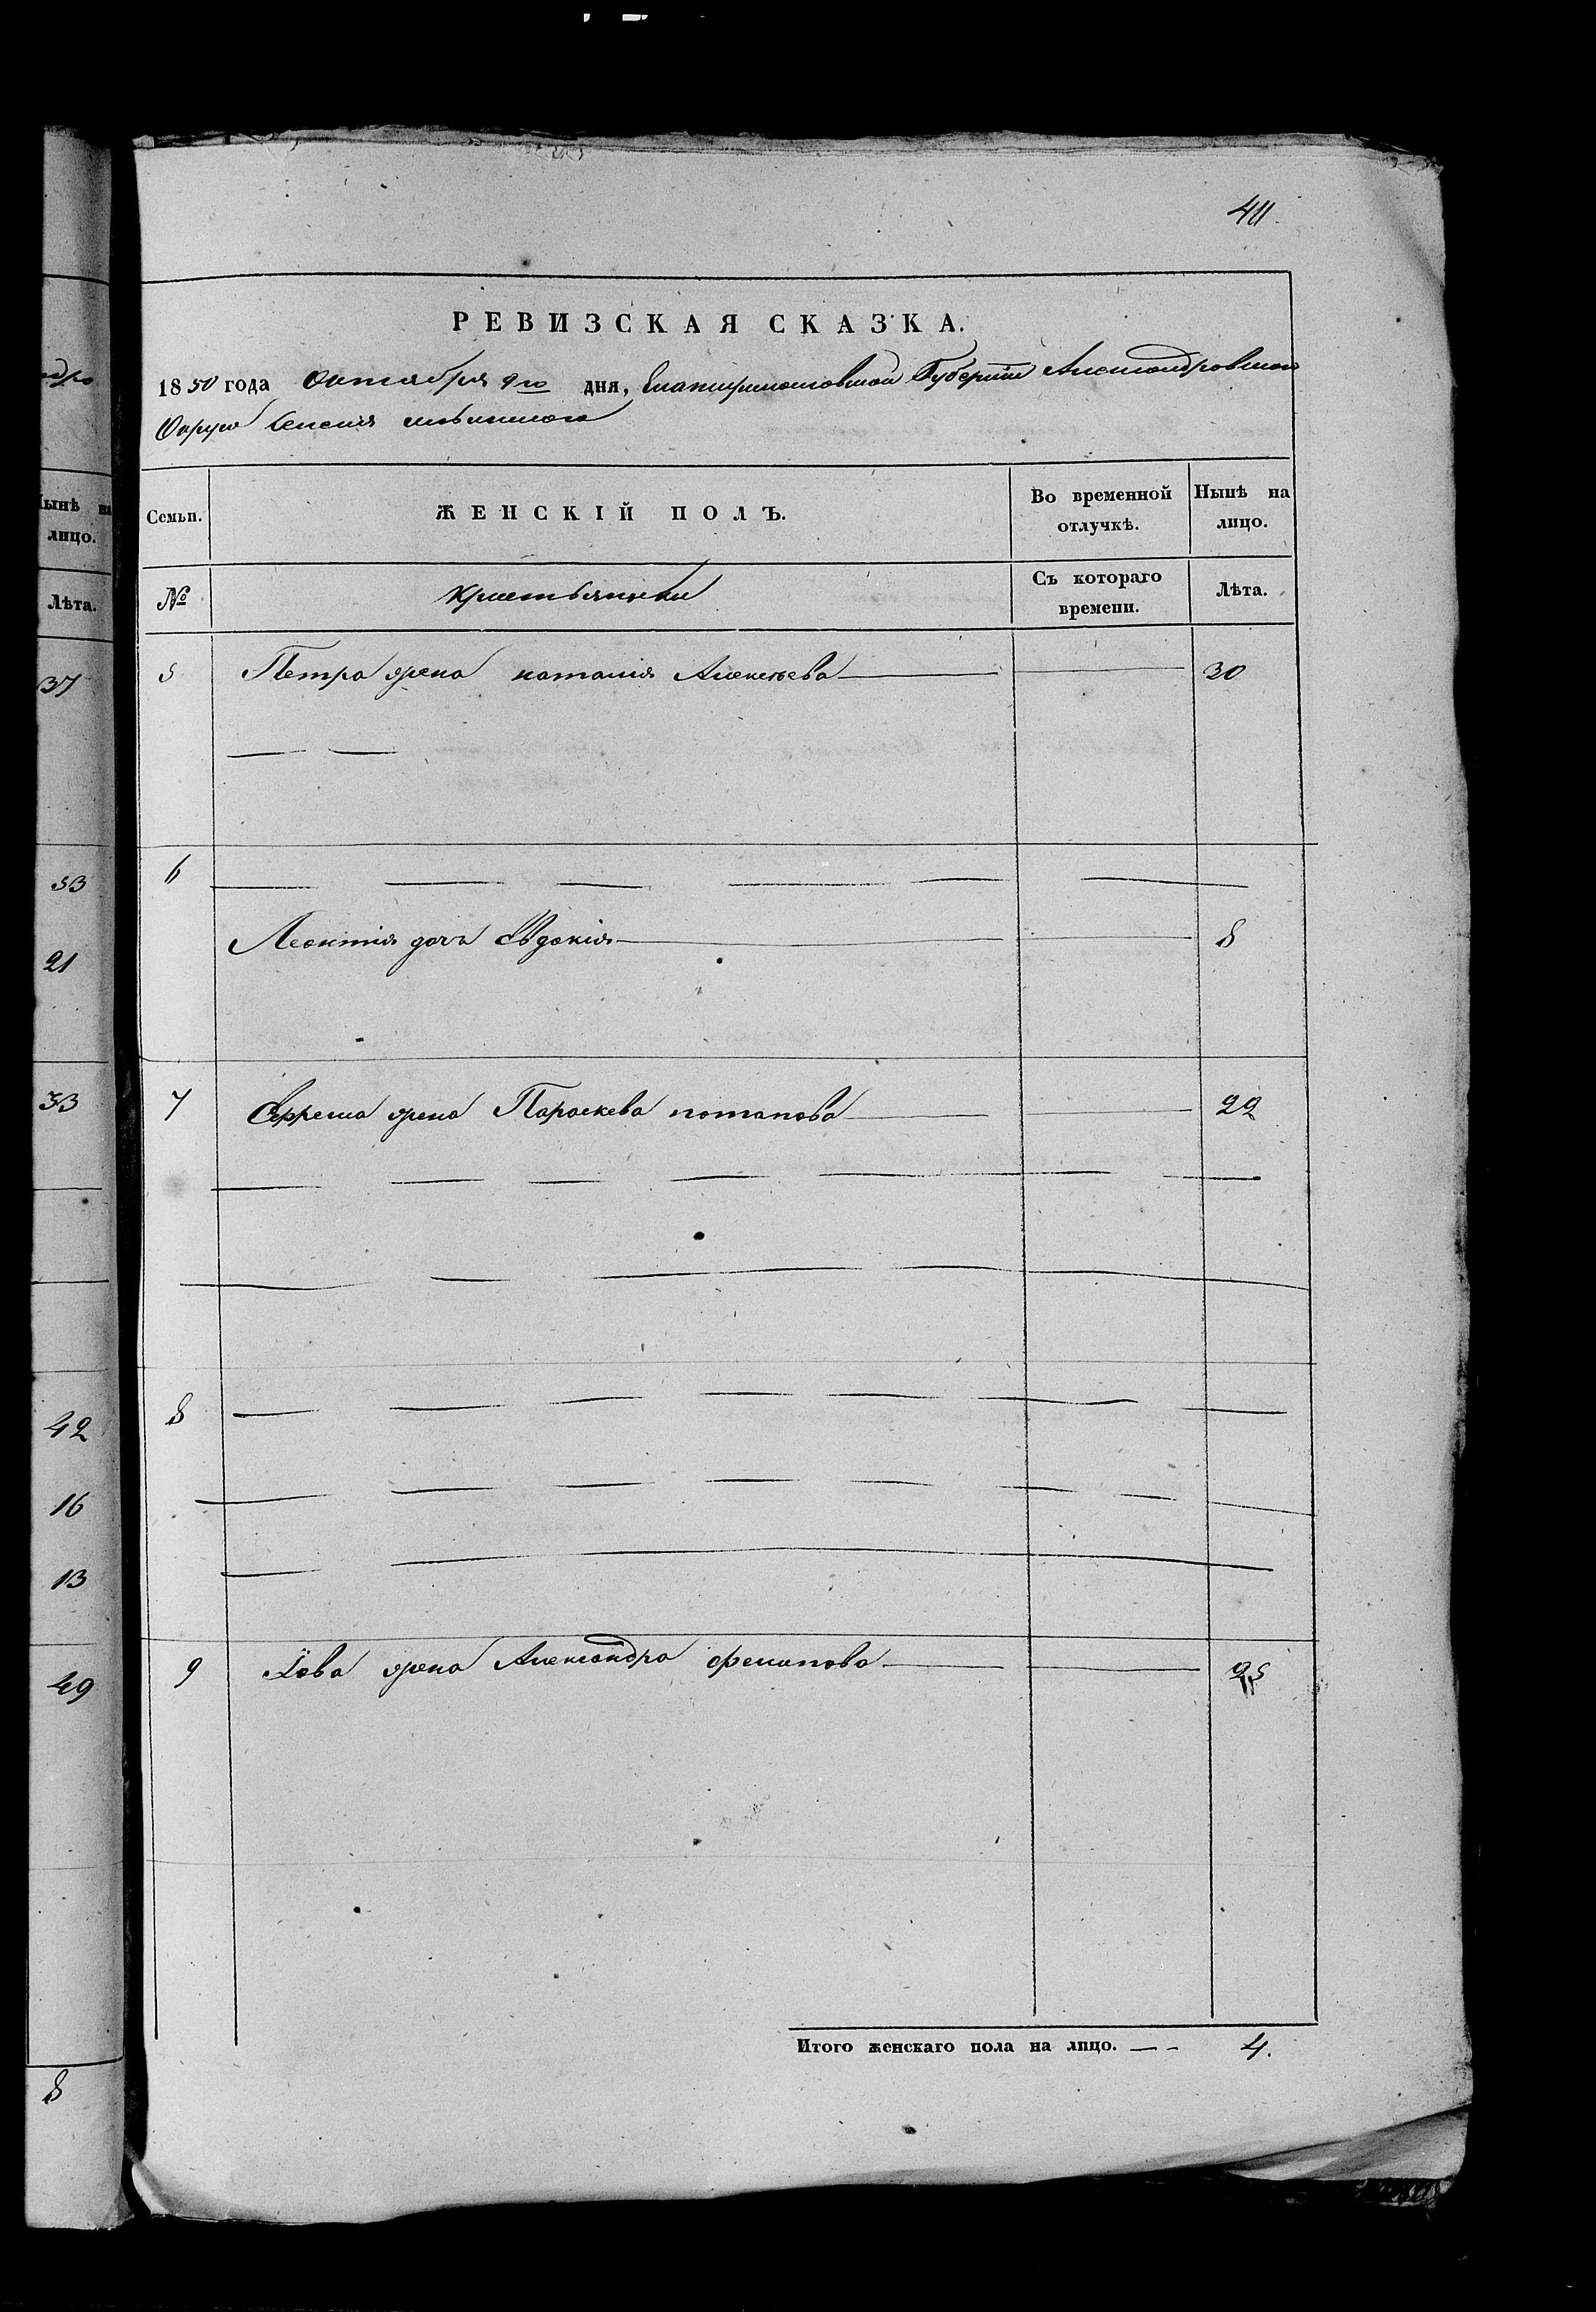 411.
РЕВИЗСКАЯ СКАЗКА.
1850 года Октября 9го дня, Екатеринославской Губернии Александровскаго
Округа селенія
Семьи.
ЖЕНСКІЙ ПОЛЪ.
Во временной отлучкѣ.
Нынѣ на лицо.
№
Крестьянки
Съ котораго времени.
Лѣта.
5 Петра жена наталія Алексѣева 30
6
Леонтія дочь Евдокія 8
7 Ефрема жена Параскева потапова 22
8
9 Іова жена Александра филипова 25
Итого женскаго пола на лицо. 4.
ндро
Нынѣ на
лицо.
Лѣта.
37
53
21
33
42
16
13
49
8